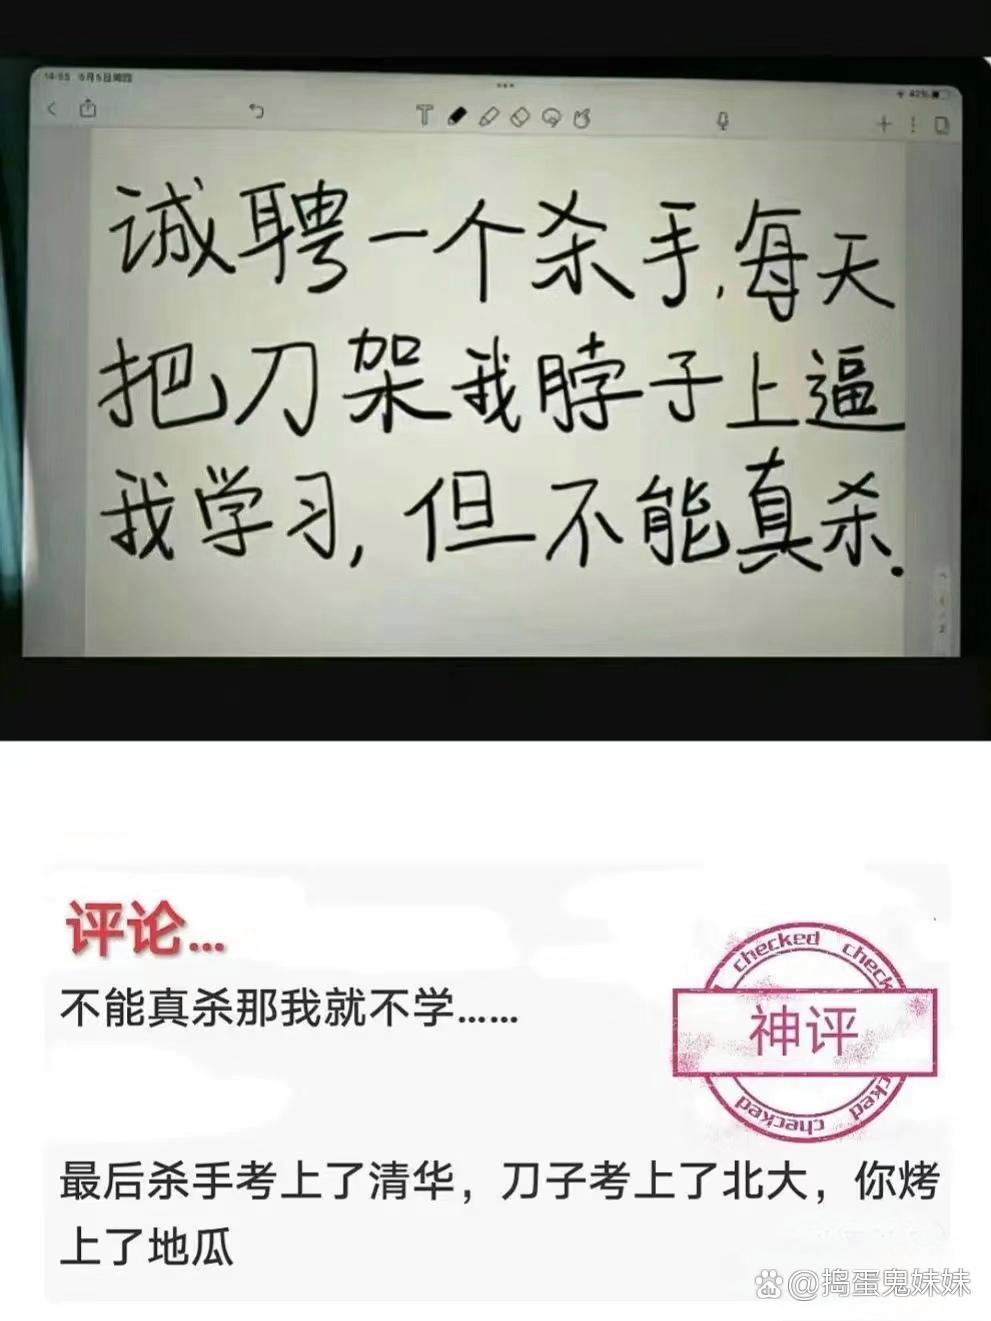 14:55 5月5日周四
42%
诚聘一个杀手,每天
把刀架我脖子上逼
我学习,但不能真杀.
评论...
不能真杀那我就不学……
checked check
神评
cked checked
最后杀手考上了清华，刀子考上了北大，你烤
上了地瓜
Bai du @捣蛋鬼妹妹